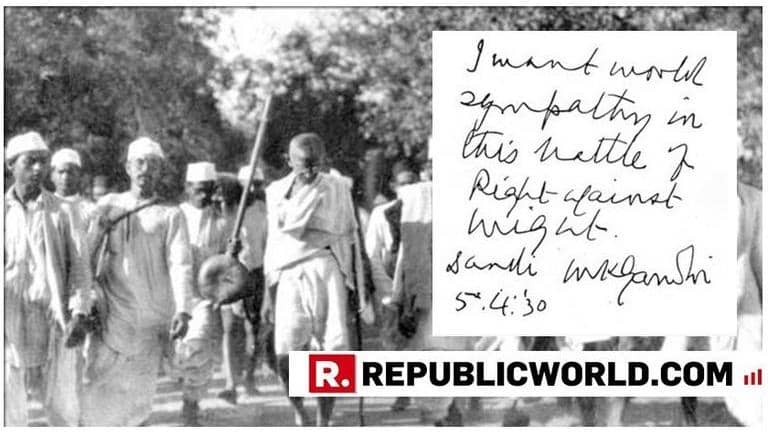 I want world
sympathy in
this battle of
Right against
might.
Dandi MKGandhi
5.4.'30
R. REPUBLICWORLD.COM